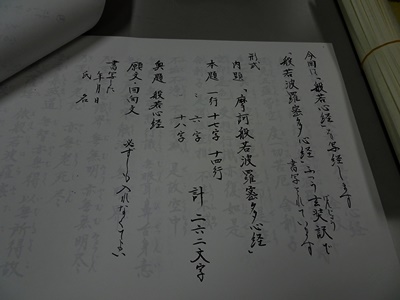 今回は「般若心経」を写経します
「般若波羅蜜多心経」ふつう玄奘訳で
げんじょう
書写されています
形式
内題 「摩訶般若波羅蜜多心経」
本題 一行 十七字 十四行
〃 六字
〃 十八字
計 二六二文字
奥題 般若心経
願文・回向文 必ずしも入れなくてもよい
書写した
年月日
氏名